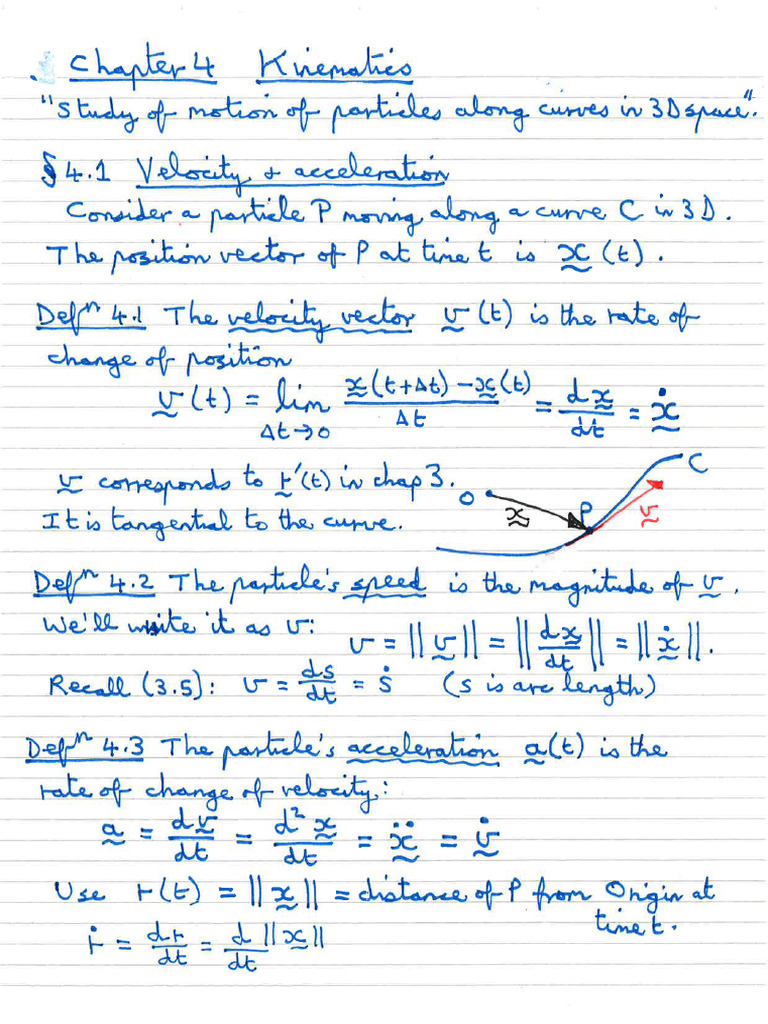 Chapter 4 Kinematics
"Study of motion of particles along curves in 3D space".
§4.1 Velocity & acceleration
Consider a particle P moving along a curve C in 3D.
The position vector of P at time t is x̰(t).
Defⁿ 4.1 The velocity vector v̰(t) is the rate of
change of position
v̰(t) = lim Δt→0 (x̰(t+Δt) − x̰(t))/Δt = dx̰/dt = ẋ̰
v̰ corresponds to r̰'(t) in chap 3.
It is tangential to the curve.
O x̰ P v̰ C
Defⁿ 4.2 The particle's speed is the magnitude of v̰.
We'll write it as v: v = ||v̰|| = ||dx̰/dt|| = ||ẋ̰||.
Recall (3.5): v = ds/dt = ṡ (s is arc length)
Defⁿ 4.3 The particle's acceleration a̰(t) is the
rate of change of velocity:
a̰ = dv̰/dt = d²x̰/dt = ẍ̰ = v̰̇
Use r(t) = ||x̰|| = distance of P from Origin at
time t.
ṙ = dr/dt = d/dt ||x̰||